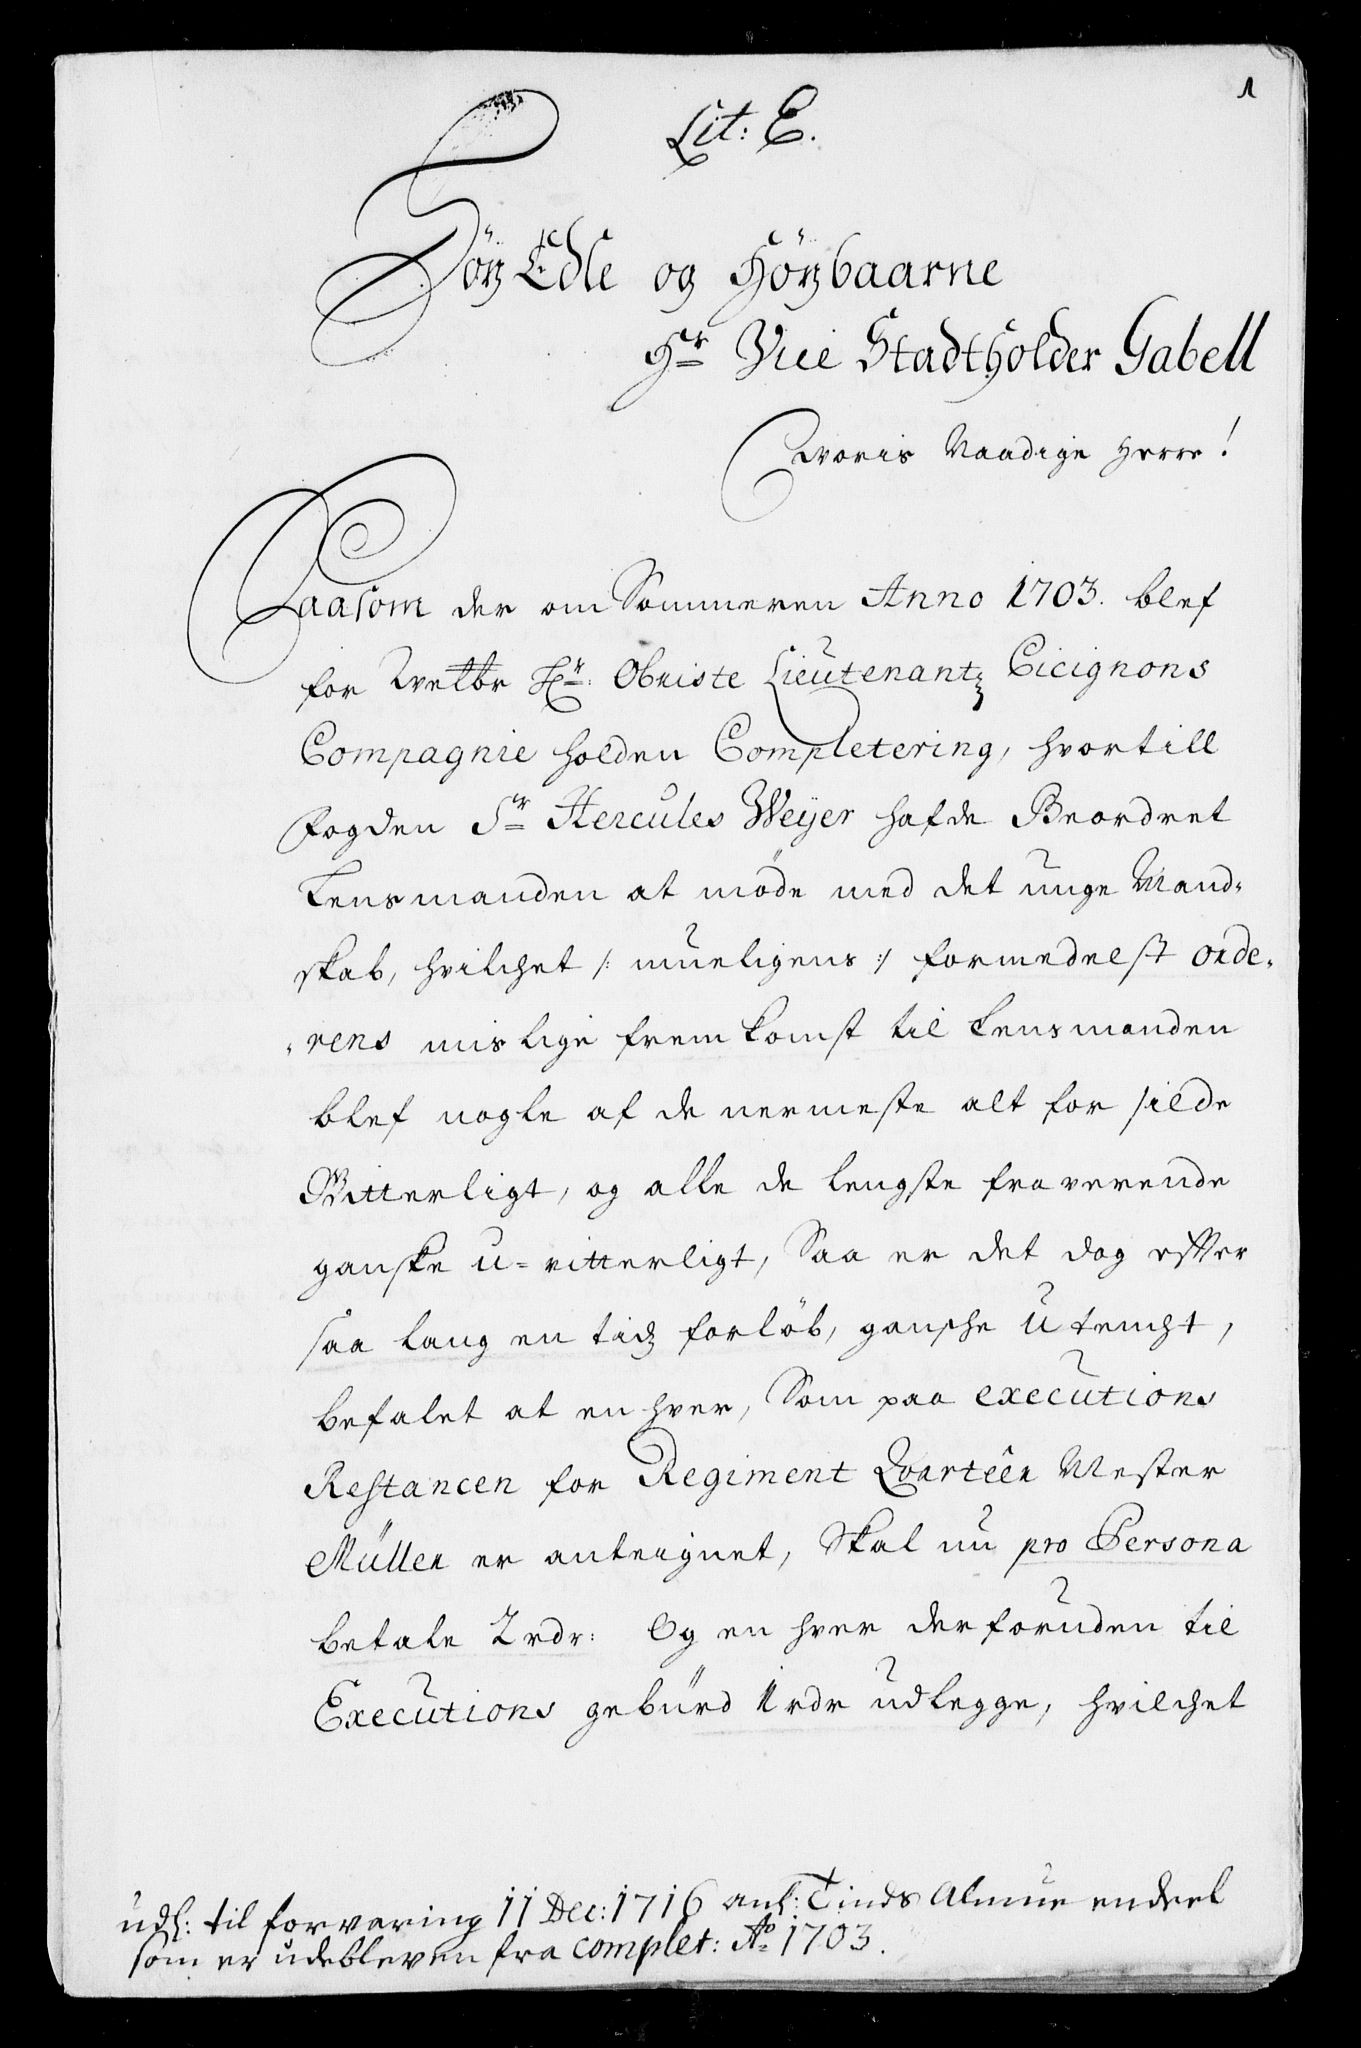 1
Lit: E.
Høy Edle og Høybaarne
Hr Vice Stadtholder Gabell
Naadige Herre!
Saasom der om Sommeren Anno 1703. blef
for Welbr Hr: Obriste Lieutenant Cicignons
Compagnie holden Completering, hvortill
Fogden Sr Hercules Weÿer hafde Beordret
Lensmanden at møde med det unge Mand-
skab, hvilchet /: mueligens :/ formedelst orde-
-rens mislige fremkomst til Lensmanden
blef nogle af de nermeste alt for silde
Witterligt, og alle de lengste fraverende
ganske u-vitterligt, Saa er det dog efter
saa lang en tid forløb, gansche Utencht,
befalet at en hver, Som paa executions
Restancen for Regiment Qvarteer Mester
Müller er anteignet, Skal nu pro Persona
betale 2 rdr: Og en hver derforuden til
Executions gebürd 1 rdr udlegge, hvilchet
til forvaring 11 Dec: 1716 anl: Tinds Almue endeel
som er udebleven fra complet: Ao 1703.